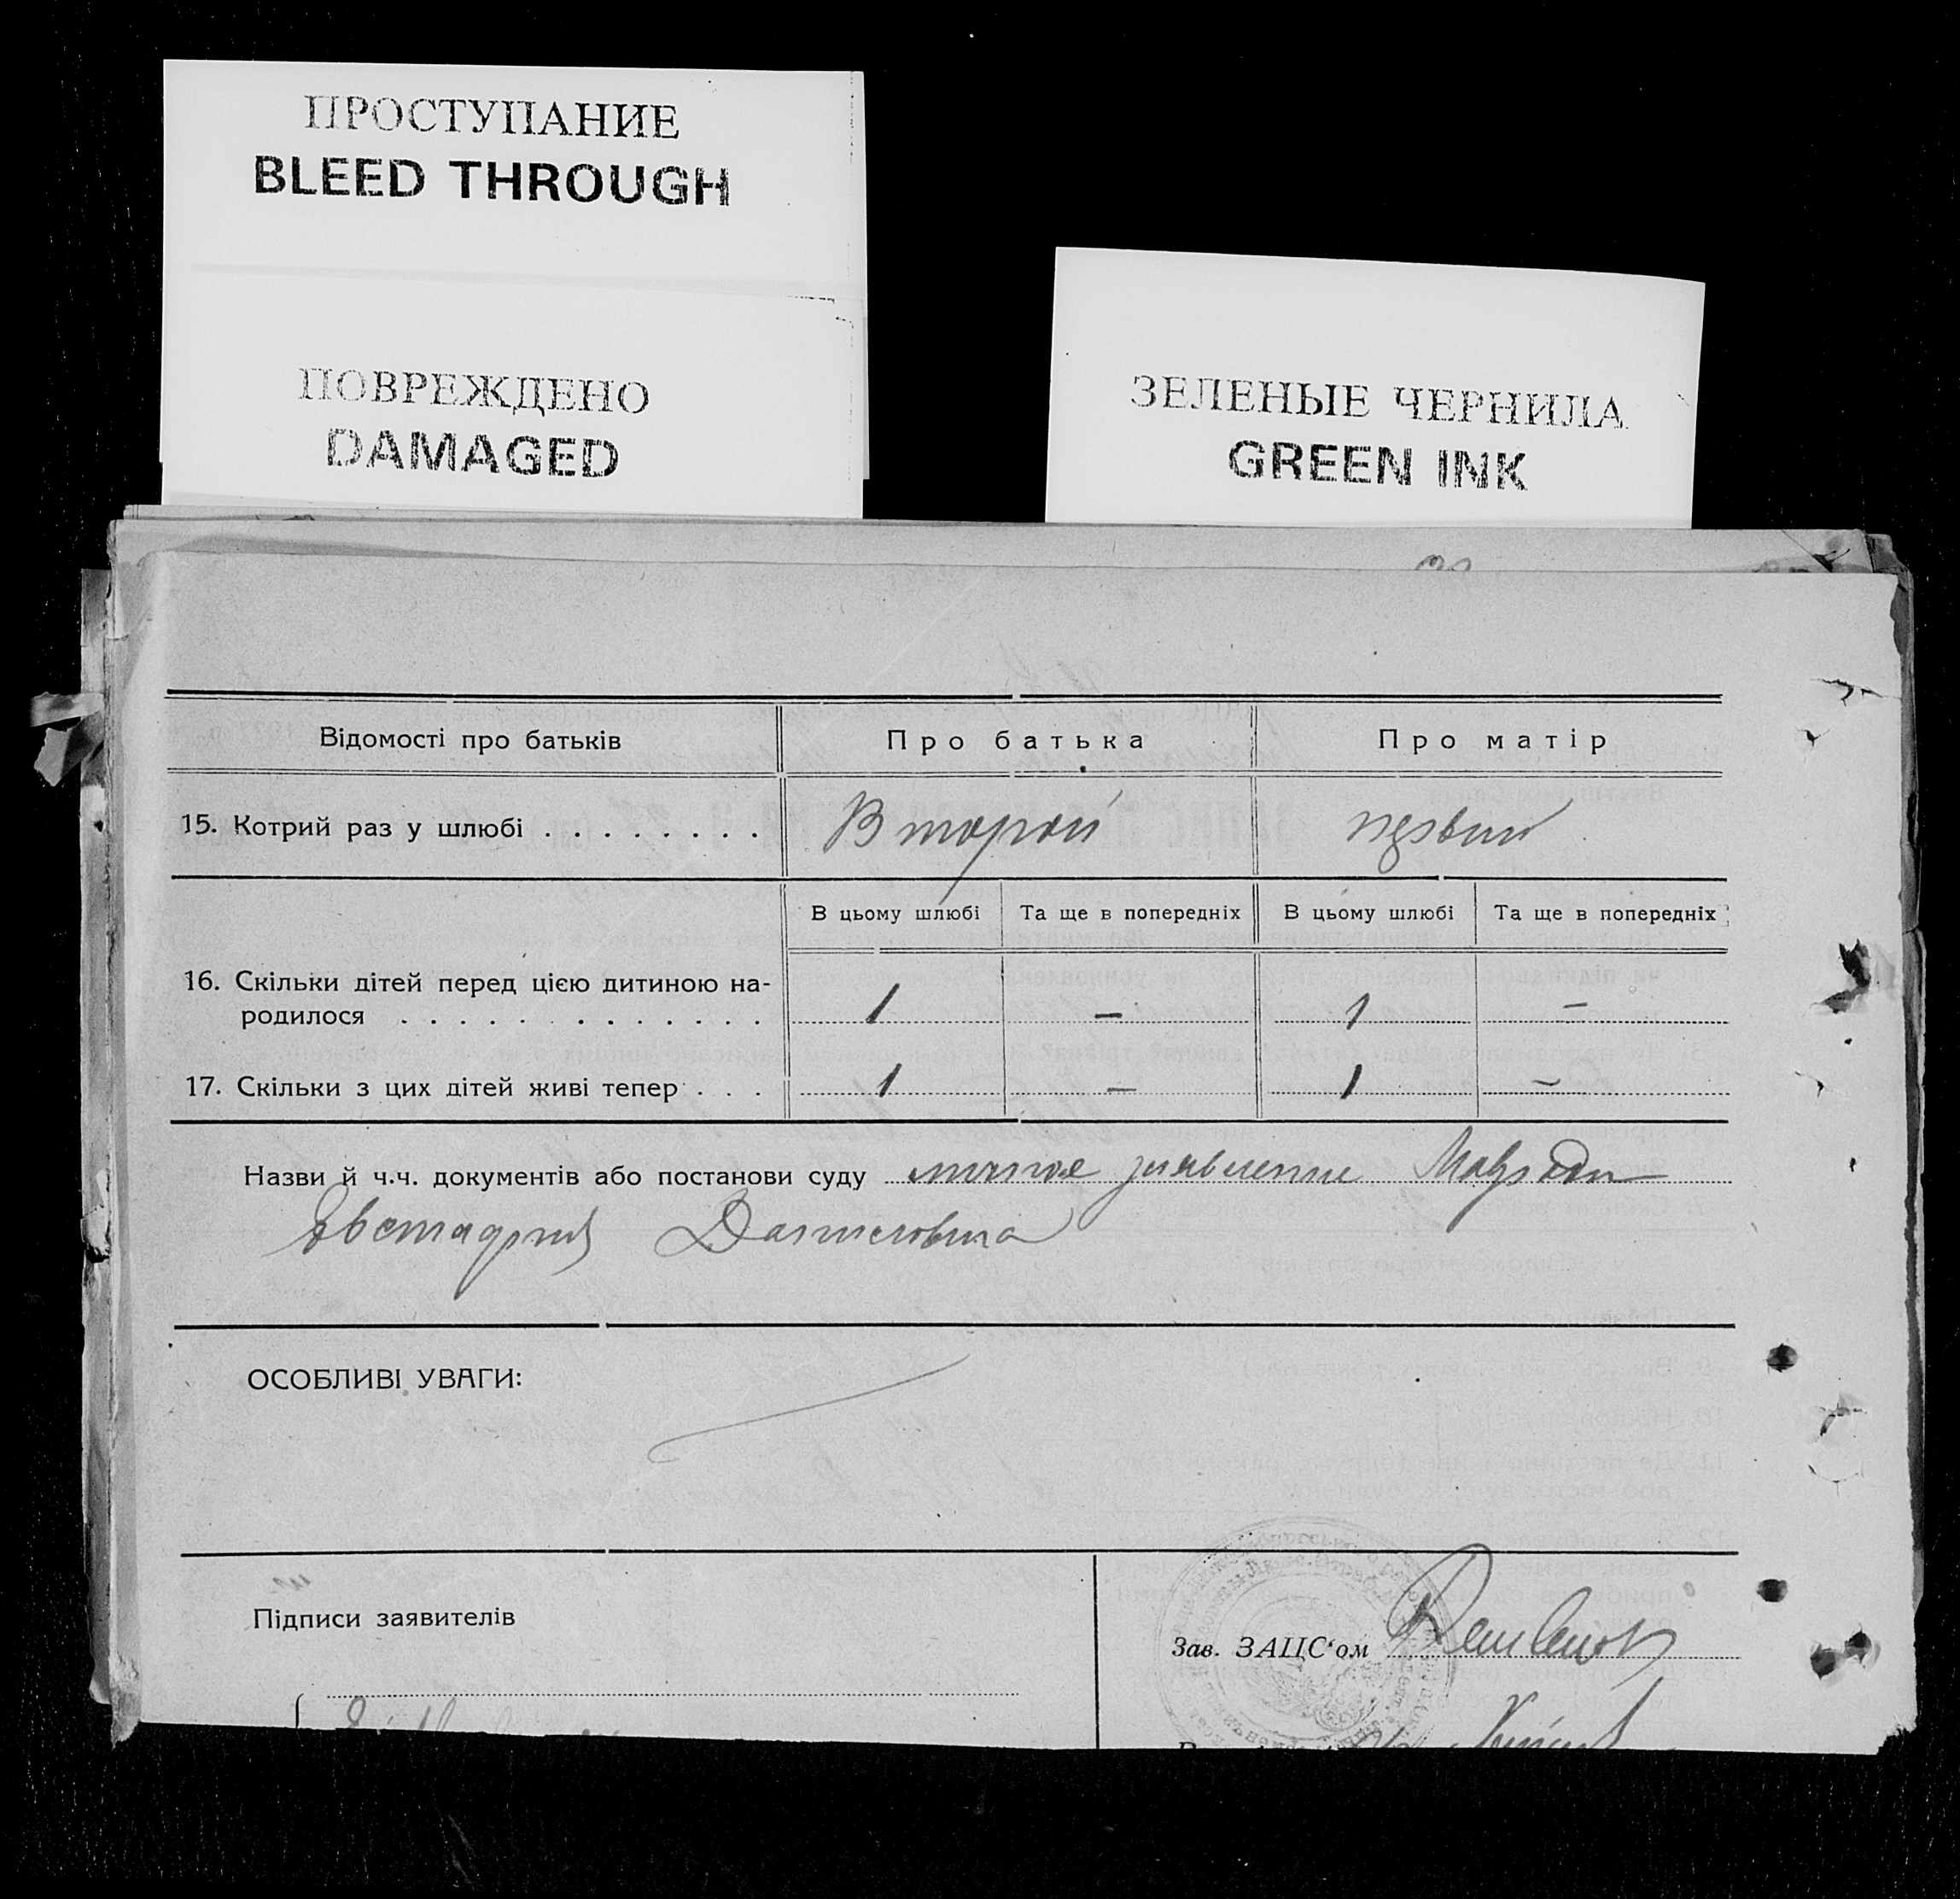 ПРОСТУПАНИЕ
BLEED THROUGH
ПОВРЕЖДЕНО
DAMAGED
ЗЕЛЕНЫЕ ЧЕРНИЛА
GREEN INK
Відомості про батьків Про батька Про матір
15. Котрий раз у шлюбі . . . . . . . . Второй первый
В цьому шлюбі Та ще в попередніх В цьому шлюбі Та ще в попередніх
16. Скільки дітей перед цією дитиною на-
родилося . . . . . . . . . . . . . 1 — 1 —
17. Скільки з цих дітей живі тепер . . . 1 — 1 —
Назви й ч.ч. документів або постанови суду личное заявление
Евстафия Даниловича
ОСОБЛИВІ УВАГИ:
Підписи заявителів
Зав. ЗАЦС'ом